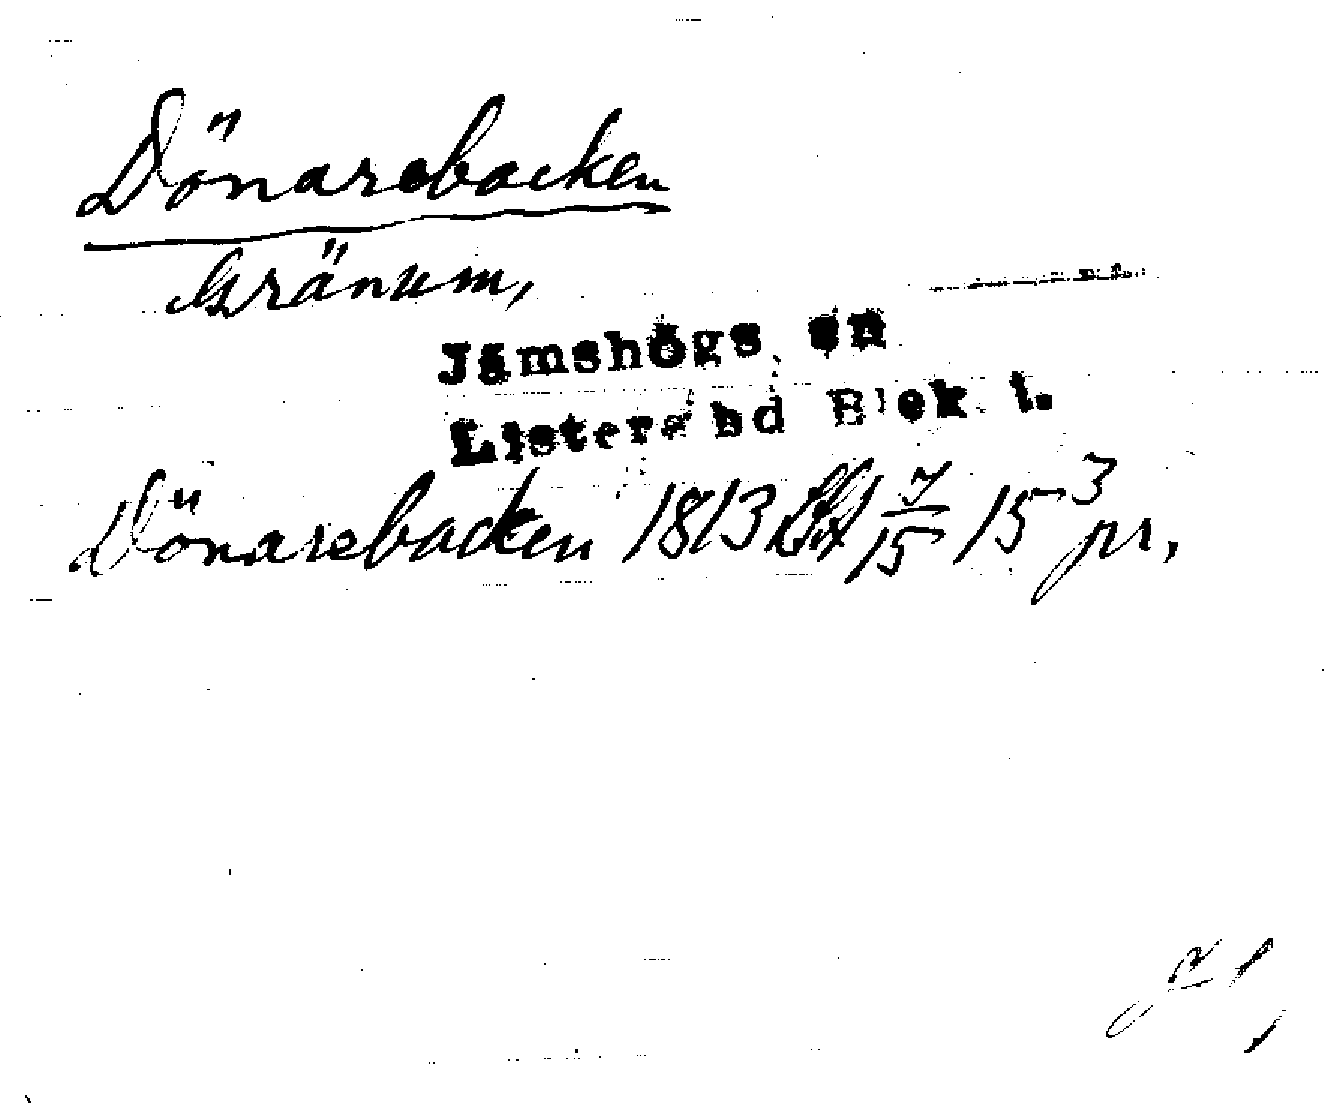 Dönarebacken
Gränum,
Jämshögs sn
Listers hd Blek l.
Dönarebacken 1813 7/15 15 3 pr,